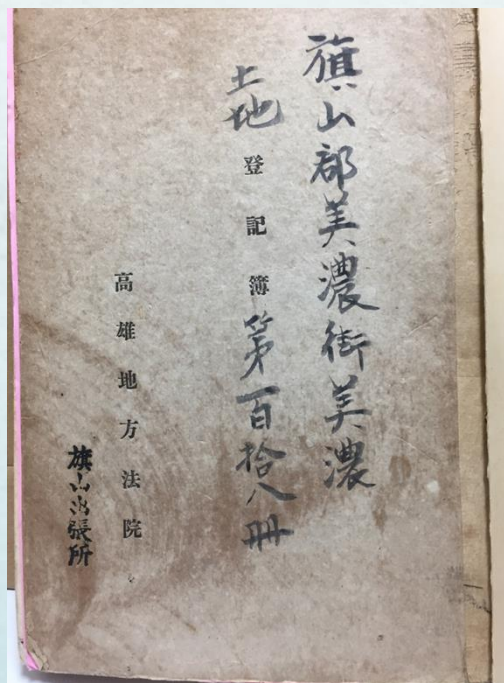 旗山郡美濃街美濃
土地登記簿第百拾八冊
高雄地方法院
旗山出張所